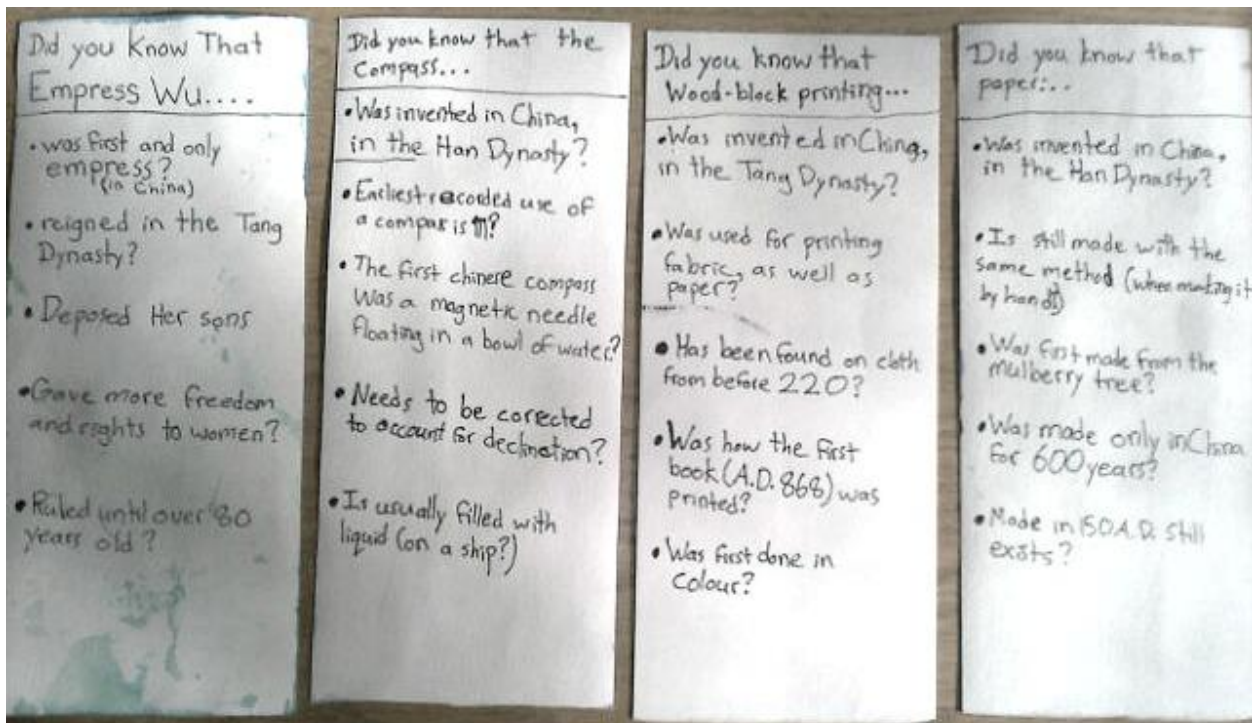 Did you Know That
Empress Wu....
• was first and only
empress?
(in China)
• reigned in the Tang
Dynasty?
• Deposed Her sons
• Gave more freedom
and rights to women?
• Ruled until over 80
years old?
Did you know that the
Compass...
• Was invented in China,
in the Han Dynasty?
• Earliest recorded use of
a compas is
• The first chinese compass
Was a magnetic needle
floating in a bowl of water?
• Needs to be corected
to account for declination?
• Is usually filled with
liquid (on a ship?)
Did you know that
Wood-block printing...
• Was invented in China,
in the Tang Dynasty?
• Was used for printing
fabric, as well as
paper?
• Has been found on cloth
from before 220?
• Was how the first
book (A.D. 868) was
printed?
• Was first done in
Colour?
Did you know that
paper...
• Was invented in China,
in the Han Dynasty?
• Is still made with the
same method (when making it
by hand)
• Was first made from the
mulberry tree?
• Was made only in China
for 600 years?
• Made in 150 A.D. still
exists?